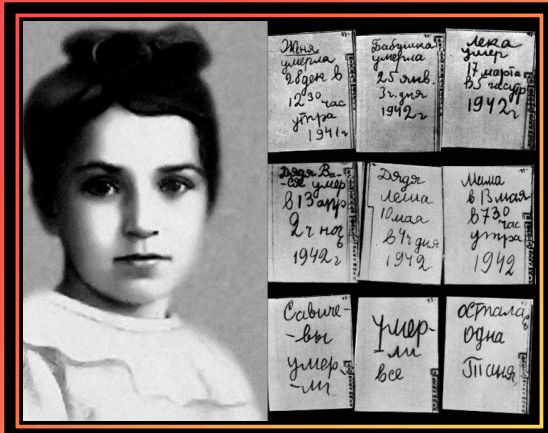 Женя
умерла
28 дек в
12 30 час
утра
1941 г
Бабушка
умерла
25 янв.
3 ч. дня
1942 г
Лека
умер
17 марта
в 5 час утр
1942 г
Дядя Ва-
-ся умер
в 13 апр
2 ч ноч
1942 г
Дядя
Леша
10 мая
в 4 ч дня
1942
Мама
в 13 мая
в 7 30
час
утра
1942
Савиче-
-вы
умер-
-ли
умер-
ли
все
осталась
одна
Таня